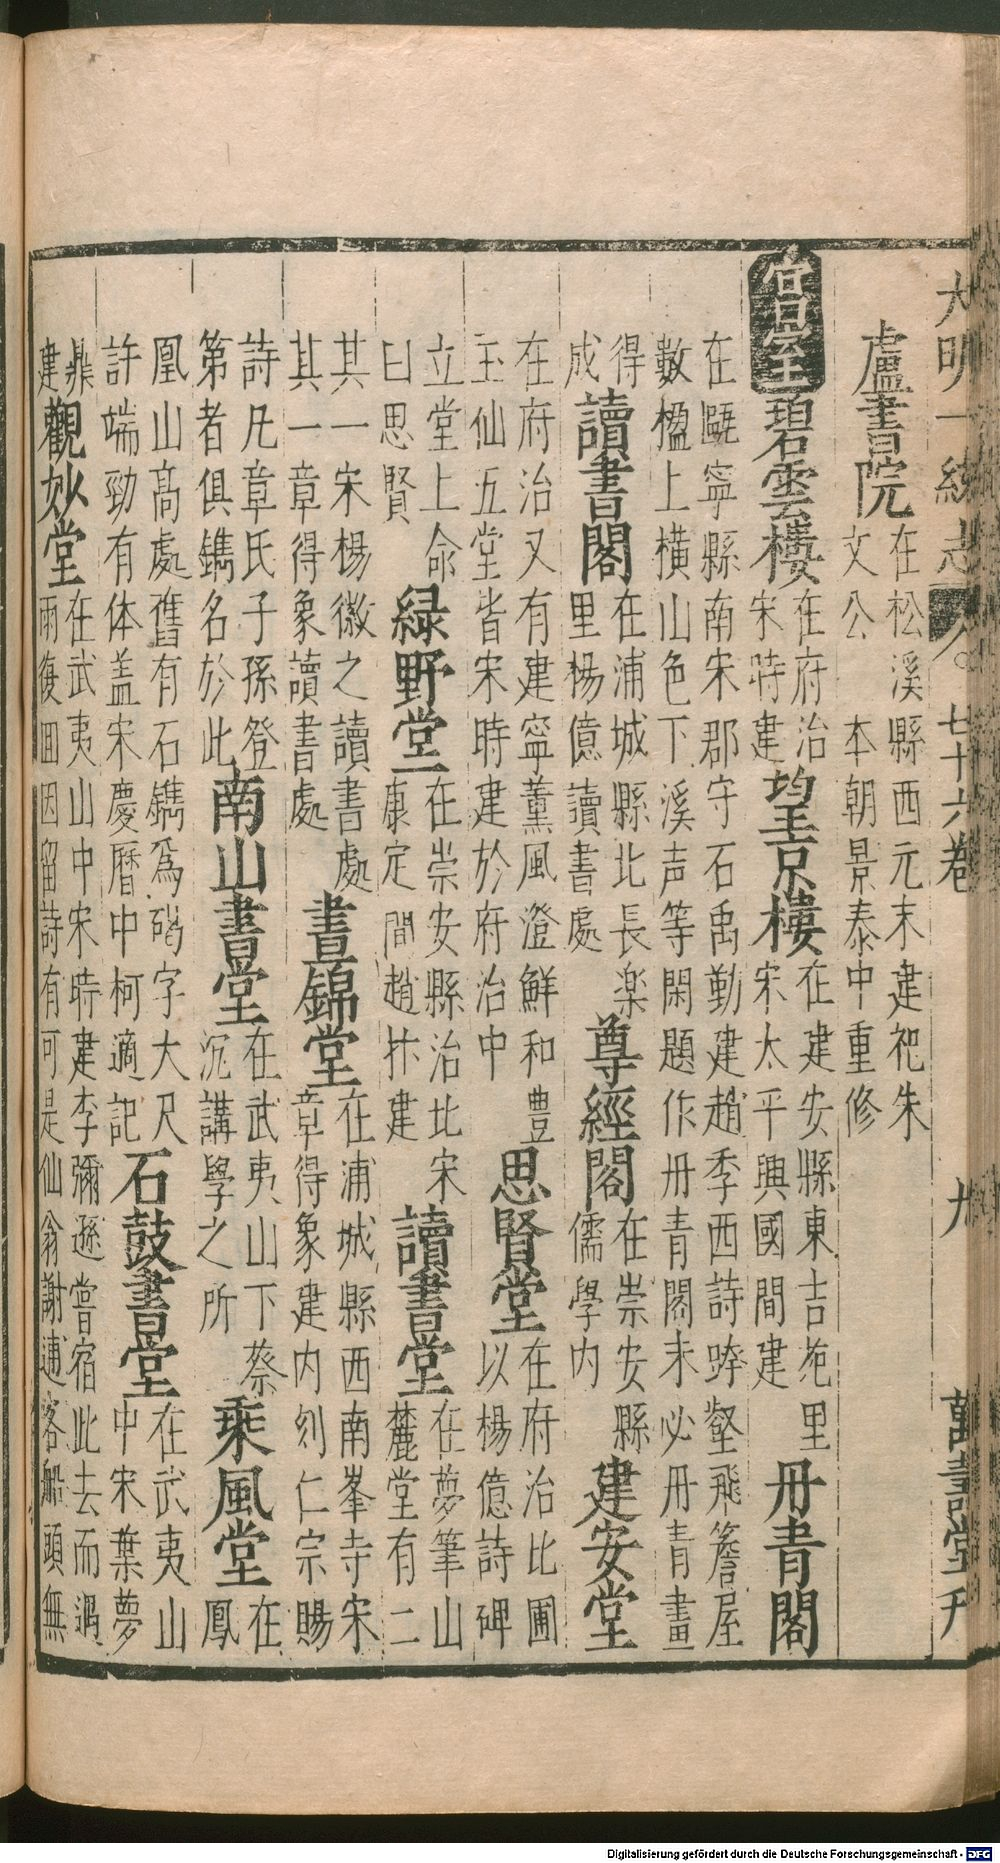 大明一統志 七十六卷 九 萬壽堂刊
盧書院
在松溪縣西元末建祀朱
文公 本朝景泰中重修
宮室碧雲樓
在府治
宋時建
望京樓
在建安縣東吉苑里
宋太平興國間建
丹青閣
在甌寧縣南宋郡守石禹勤建趙季西詩哞壑飛簷屋
數楹上橫山色下溪声等閑題作丹青閣未必丹青畫
得
成
讀書閣
在浦城縣北長楽
里楊億讀書處
尊經閣
在崇安縣
儒學內
建安堂
在府治又有建寧薰風澄鮮和豊
玉仙五堂皆宋時建於府治中
思賢堂
在府治比圃
以楊億詩碑
立堂上命
曰思賢
綠野堂
在崇安縣治比宋
康定間趙抃建
讀書堂
在夢筆山
麓堂有二
其一宋楊徽之讀書處
其一章得象讀書處
晝錦堂
在浦城縣西南峯寺宋
章得象建內刻仁宗賜
詩凡章氏子孫登
第者俱鐫名於此
南山書堂
在武夷山下蔡
沉講學之所
乘風堂
在
鳳
凰山髙處舊有石鐫為碣字大尺
許端勁有体盖宋慶曆中柯適記
石鼓書堂
在武夷山
中宋葉夢
鼎
建
觀妙堂
在武夷山中宋時建李彌遜嘗宿此去而遇
雨復回因留詩有可是仙翁謝逋客船頭無
Digitalisierung gefördert durch die Deutsche Forschungsgemeinschaft - DFG